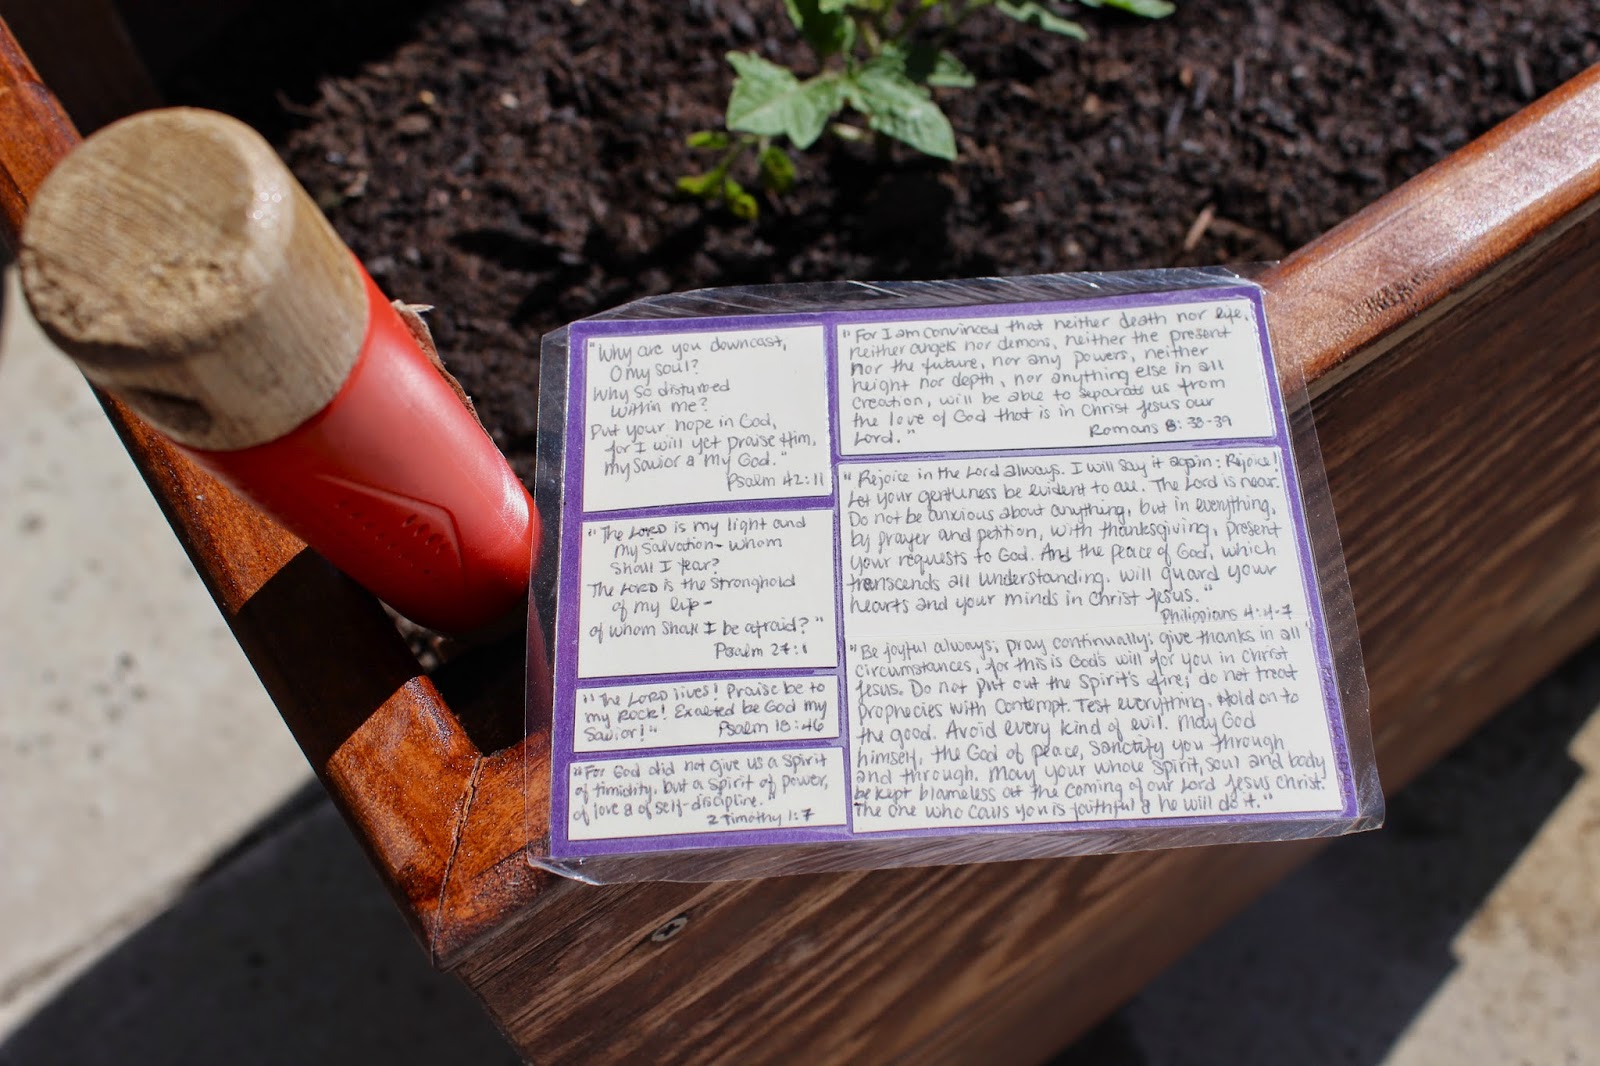 "Why are you downcast,
O my soul?
Why so disturbed
within me?
Put your hope in God,
for I will yet praise Him,
my Savior & my God."
Psalm 42:11
"The LORD is my light and
my salvation- whom
shall I fear?
The LORD is the stronghold
of my life-
of whom shall I be afraid?"
Psalm 27:1
"The LORD lives! Praise be to
my Rock! Exalted be God my
Savior!" Psalm 18:46
"For God did not give us a spirit
of timidity, but a spirit of power,
of love & of self-discipline."
2 Timothy 1:7
"For I am convinced that neither death nor life,
neither angels nor demons, neither the present
nor the future, nor any powers, neither
height nor depth, nor anything else in all
creation, will be able to separate us from
the love of God that is in Christ Jesus our
Lord." Romans 8:38-39
"Rejoice in the Lord always. I will say it again: Rejoice!
Let your gentleness be evident to all. The Lord is near.
Do not be anxious about anything, but in everything,
by prayer and petition, with thanksgiving, present
your requests to God. And the peace of God, which
transcends all understanding, will guard your
hearts and your minds in Christ Jesus."
Philippians 4:4-7
"Be joyful always; pray continually; give thanks in all
circumstances, for this is God's will for you in Christ
Jesus. Do not put out the Spirit's fire; do not treat
prophecies with contempt. Test everything. Hold on to
the good. Avoid every kind of evil. May God
himself, the God of peace, sanctify you through
and through. May your whole spirit, soul and body
be kept blameless at the coming of our Lord Jesus Christ.
The one who calls you is faithful & he will do it."